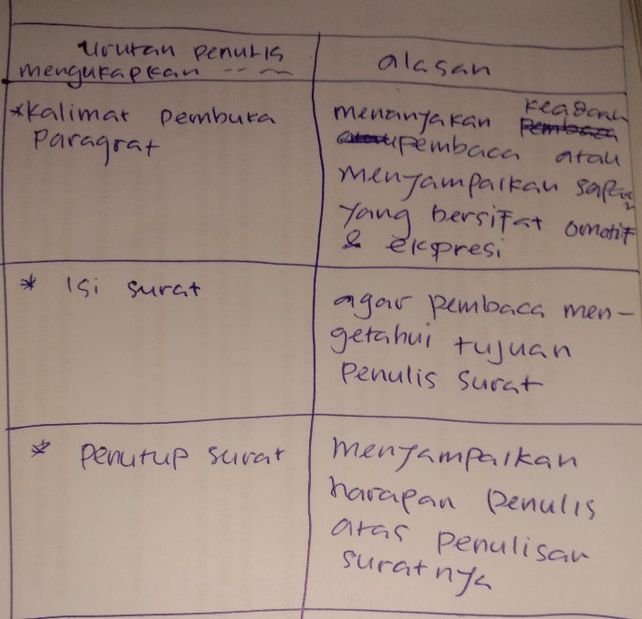 urutan penulis
mengukapkan -- ~
alasan
*Kalimat pembuka
paragraf
menanyakan keadaan
pembaca atau
menyampaikan sapaan
yang bersifat omotif
& ekspresi
* Isi surat
agar pembaca men-
getahui tujuan
penulis surat
* penutup surat
menyampaikan
harapan penulis
atas penulisan
suratnya